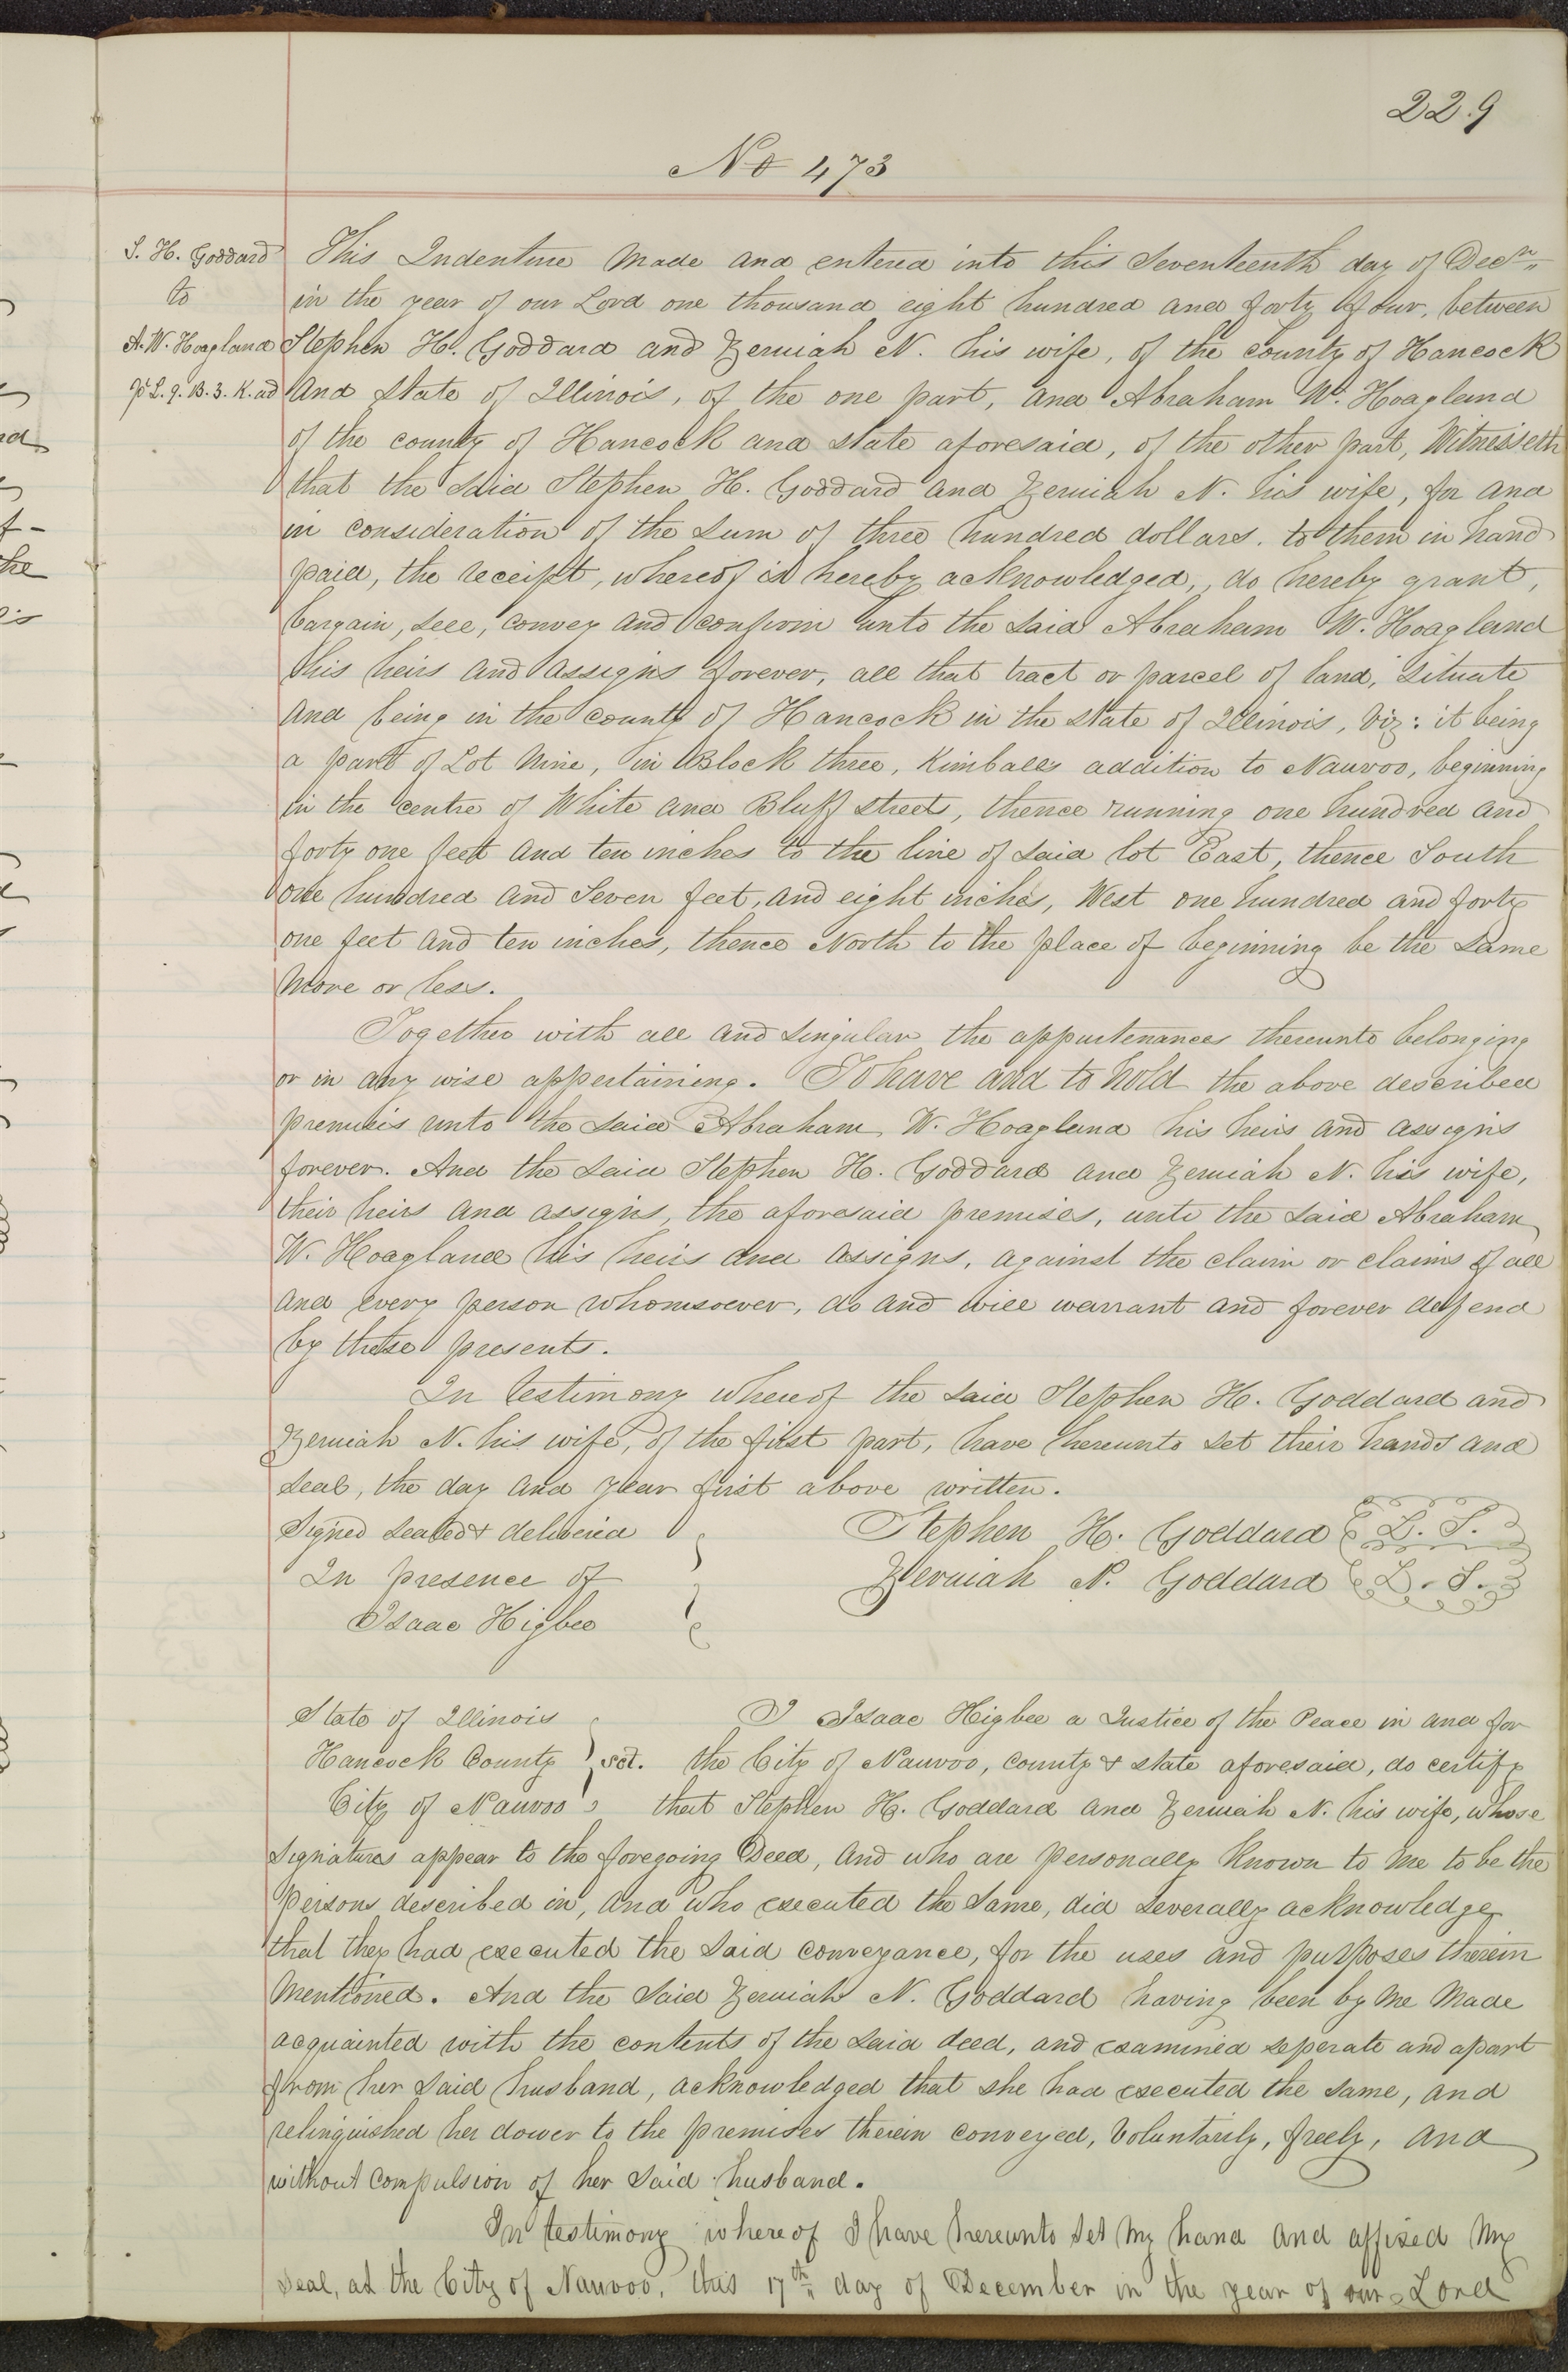 229
No 473
S. H. Goddard
to
A. W. Hoagland
pt L. 9. B. 3. K. ad
This Indenture Made and entered into this Seventeenth day of Decr.
in the year of our Lord one thousand eight hundred and forty four, between
Stephen H. Goddard and Zeruiah N. his wife, of the county of Hancock
and State of Illinois, of the one part, and Abraham W. Hoagland
of the county of Hancock and state aforesaid, of the other part, Witnesseth
that the said Stephen H. Goddard and Zeruiah N. his wife, for and
in consideration of the sum of three hundred dollars. to them in hand
paid, the receipt, whereof is hereby acknowledged, do hereby grant,
bargain, sell, convey and confirm unto the said Abraham W. Hoagland
his heirs and assigns forever, all that tract or parcel of land, situate
and being in the county of Hancock in the state of Illinois, viz: it being
a part of Lot Nine, in Block three, Kimballs addition to Nauvoo, beginning
in the centre of White and Bluff streets, thence running one hundred and
forty one feet and ten inches to the line of said lot East, thence South
one hundred and Seven feet, and eight inches, West one hundred and forty
one feet and ten inches, thence North to the place of beginning be the same
more or less.
Together with all and singular the appurtenances thereunto belonging
or in any wise appertaining. To have and to hold the above described
premisis unto the said Abraham W. Hoagland his heirs and assigns
forever. And the said Stephen H. Goddard and Zeruiah N. his wife,
their heirs and assigns, the aforesaid premises, unto the said Abraham
W. Hoagland his heirs and assigns, against the claim or claims of all
and every person whomsoever, do and will warrant and forever defend
by these presents.
In testimony whereof the said Stephen H. Goddard and
Zeruiah N. his wife, of the first part, have hereunto set their hands and
seals, the day and year first above written.
Signed sealed & delivered
In presence of
Isaac Higbee
Stephen H. Goddard L. S.
Zeruiah N. Goddard L. S.
State of Illinois
Hancock County sct.
City of Nauvoo
I Isaac Higbee a Justice of the Peace in and for
the City of Nauvoo, county & state aforesaid, do certify
that Stephen H. Goddard and Zeruiah N. his wife, whose
signatures appear to the foregoing Deed, and who are personally known to me to be the
persons described in, and who executed the same, did severally acknowledge
that they had executed the said conveyance, for the uses and purposes therein
mentioned. And the said Zeruiah N. Goddard having been by me made
acquainted with the contents of the said deed, and examined seperate and apart
from her said husband, acknowledged that she had executed the same, and
relinquished her dower to the premises therein conveyed, voluntarily, freely, and
without compulsion of her said husband.
In testimony whereof I have hereunto set my hand and affixed my
seal, at the City of Nauvoo, this 17th day of December in the year of our Lord